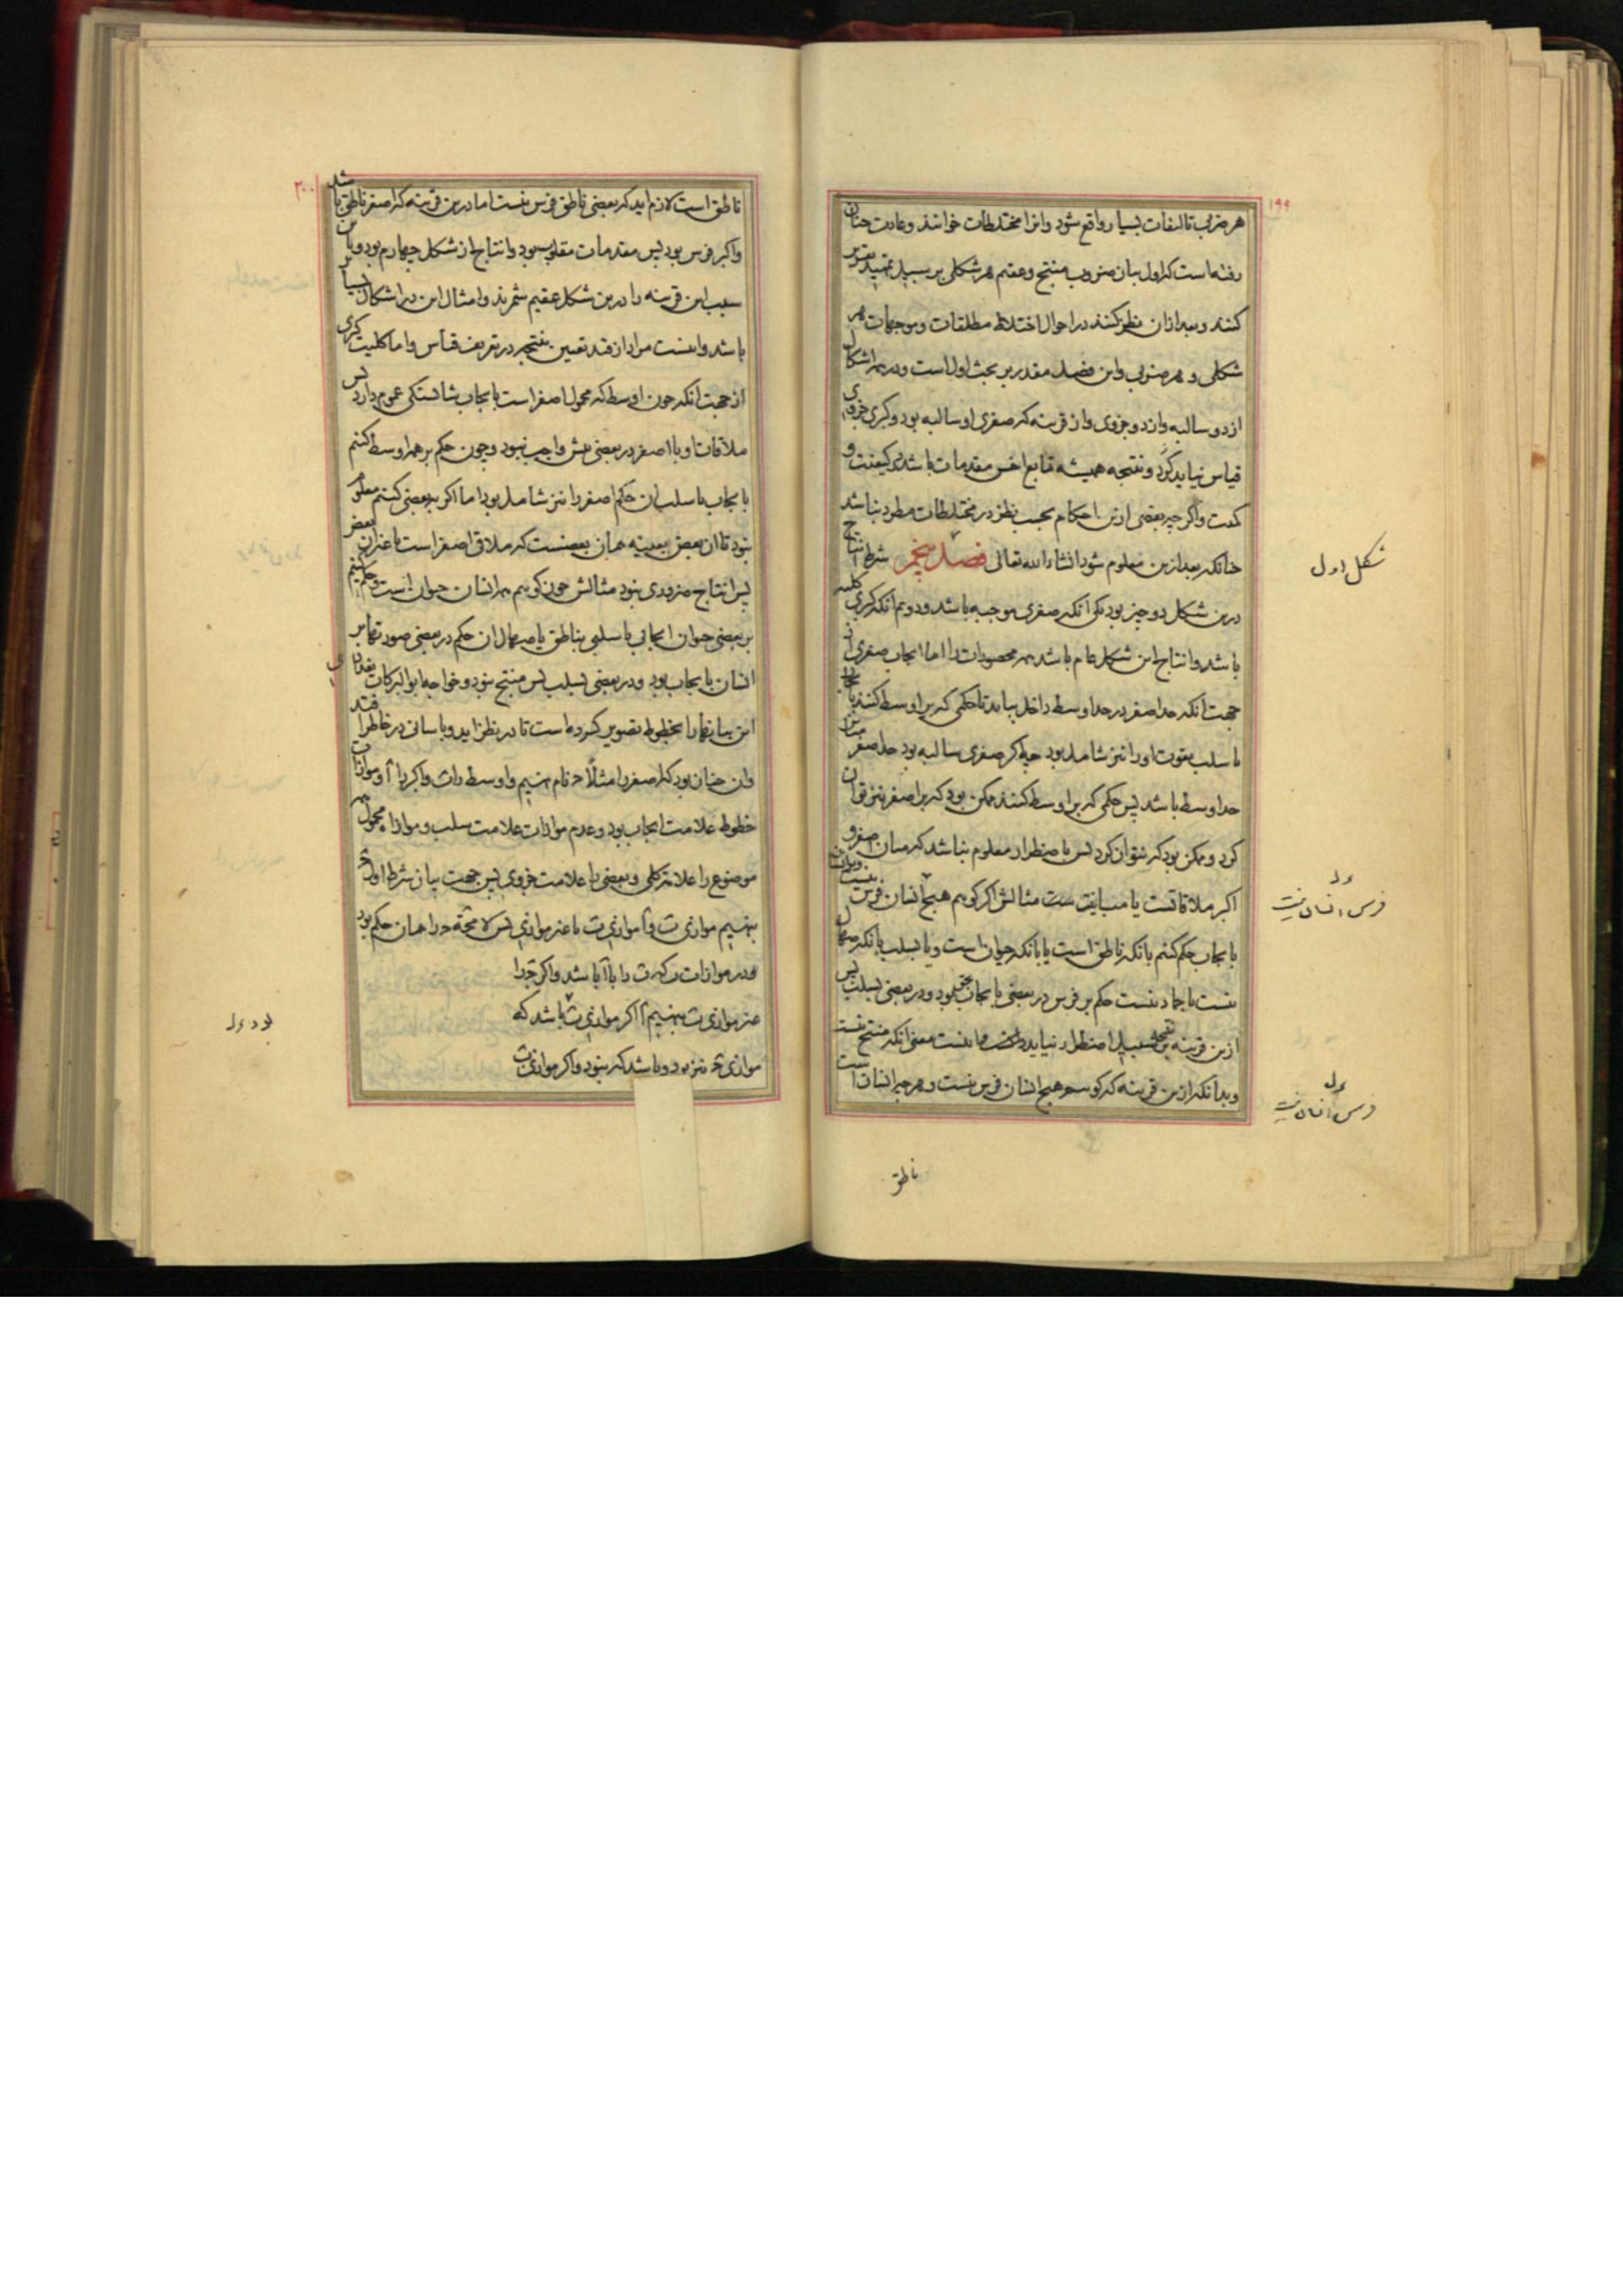 ۱۹۹
هر ضربی تالیفات بسیار واقع شود وانرا مختلطات خوانند وعادت چنان
رفته است که اول بیان ضروب منتج وعقیم هر شکلی بر سبیل تمهید تقریر
کنند وبعد ازان نظر کنند در احوال اختلاط مطلقات وموجهات هر
شکلی و هر ضربی واین فصل مقدر بر بحث اول است ودر همه اشکال
از دو سالبه واز دو جزوی واز قرینه که صغری او سالبه بود وکبری جزوی
قیاس نیاید کرد ونتیجه همیشه تابع اخس مقدمات باشد در کیفیت و
کمیت واگرچه بعضی ازین احکام بحسب نظر در مختلطات مطرد نباشد
چنانکه بعد ازین معلوم شود انشاء الله تعالی فصل پنجم شرط انتاج
درین شکل دو چیز بود یکی انکه صغری موجبه باشد ودوم انکه کبری کلیه
باشد وانتاج این شکل عام باشد همه محصورات را اما ایجاب صغری از
جهت انکه حد اصغر در حد اوسط داخل بباید تا حکمی که بر اوسط کنند بایجاب
یا سلب بقوت اورا نیز شامل بود چه اگر صغری سالبه بود حد اصغر مباین
حد اوسط باشد پس حکمی که بر اوسط کنند ممکن بود که بر اصغر نیز توان
کرد وممکن بود که نتوان کرد پس باضطرار معلوم نباشد که میان اصغر و
اکبر ملاقاتست یا مباینت ست مثالش اگر گویم هیچ انسان فرس نیست
بایجاب حکم کنیم بانکه ناطق است یا بانکه حیوان است ویا بسلب بانکه صهال
نیست یا جماد نیست حکم بر فرس در بعضی بایجاب بود ودر بعضی بسلب پس
ازین قرینه نتیجه بر سبیل اضطرار نیاید و نیست معنی انکه منتج نیست
وبدانکه ازین قرینه که گوییم هیچ انسان فرس نیست وهرچه انسان است
ناطق
شکل اول
فرس انسان نیست
فرس انسان نیست
۲۰۰
ناطق است لازم اید که بعضی ناطق فرس نیست اما درین قرینه که اصغر ناطق باشد
واکبر فرس بود پس مقدمات مقلوب بود وانتاج از شکل چهارم بود وباین
سبب این قرینه را درین شکل عقیم شمرند وامثال این در اشکال بسیار
باشد واینست مراد از قید تعیین نتیجه در تعریف قیاس واما کلیت کبری
از جهت انکه چون اوسط که محمول اصغر است بایجاب شایستگی عموم دارد پس
ملاقات او با اصغر در بعضی بیش واجب نبود وچون حکم بر همه اوسط کنیم
بایجاب یا سلب ان حکم اصغر را نیز شامل بود اما اگر ببعضی کنیم معلوم
نبود تا ان بعض بعینه همان بعضست که ملاقی اصغر است یا غیر ان بعض
پس انتاج ضروری نبود مثالش چون گویم همه انسان حیوان است وحکم کنیم
بر بعضی حیوان ایجابی یا سلبی بناطق یا صهال ان حکم در بعضی صور تها بر
انسان بایجاب بود ودر بعضی بسلب پس منتج نبود وخواجه ابوالبرکات بغدادی
این بیانها را بخطوط تصویر کرده است تا در نظر اید وباسانی در خاطر افتد
وان چنان بود که اصغر را مثلا ج نام نهیم واوسط را ب واکبر را ا وموازات
خطوط علامت ایجاب بود وعدم موازات علامت سلب وموازا محمول
موضوع را علامت کلی وبعضی را علامت جزوی پس جهت بیان شرط اول
بنهیم موازی ب وا موازی ب یا غیر موازی پس لا محاله ج را همان حکم بود
در موازات که ب را با ا باشد واگر ج را
غیر موازی ب بنهیم ا اگر موازی ب باشد که
موازی ج نیز بود وباشد که نبود واگر موازی ب